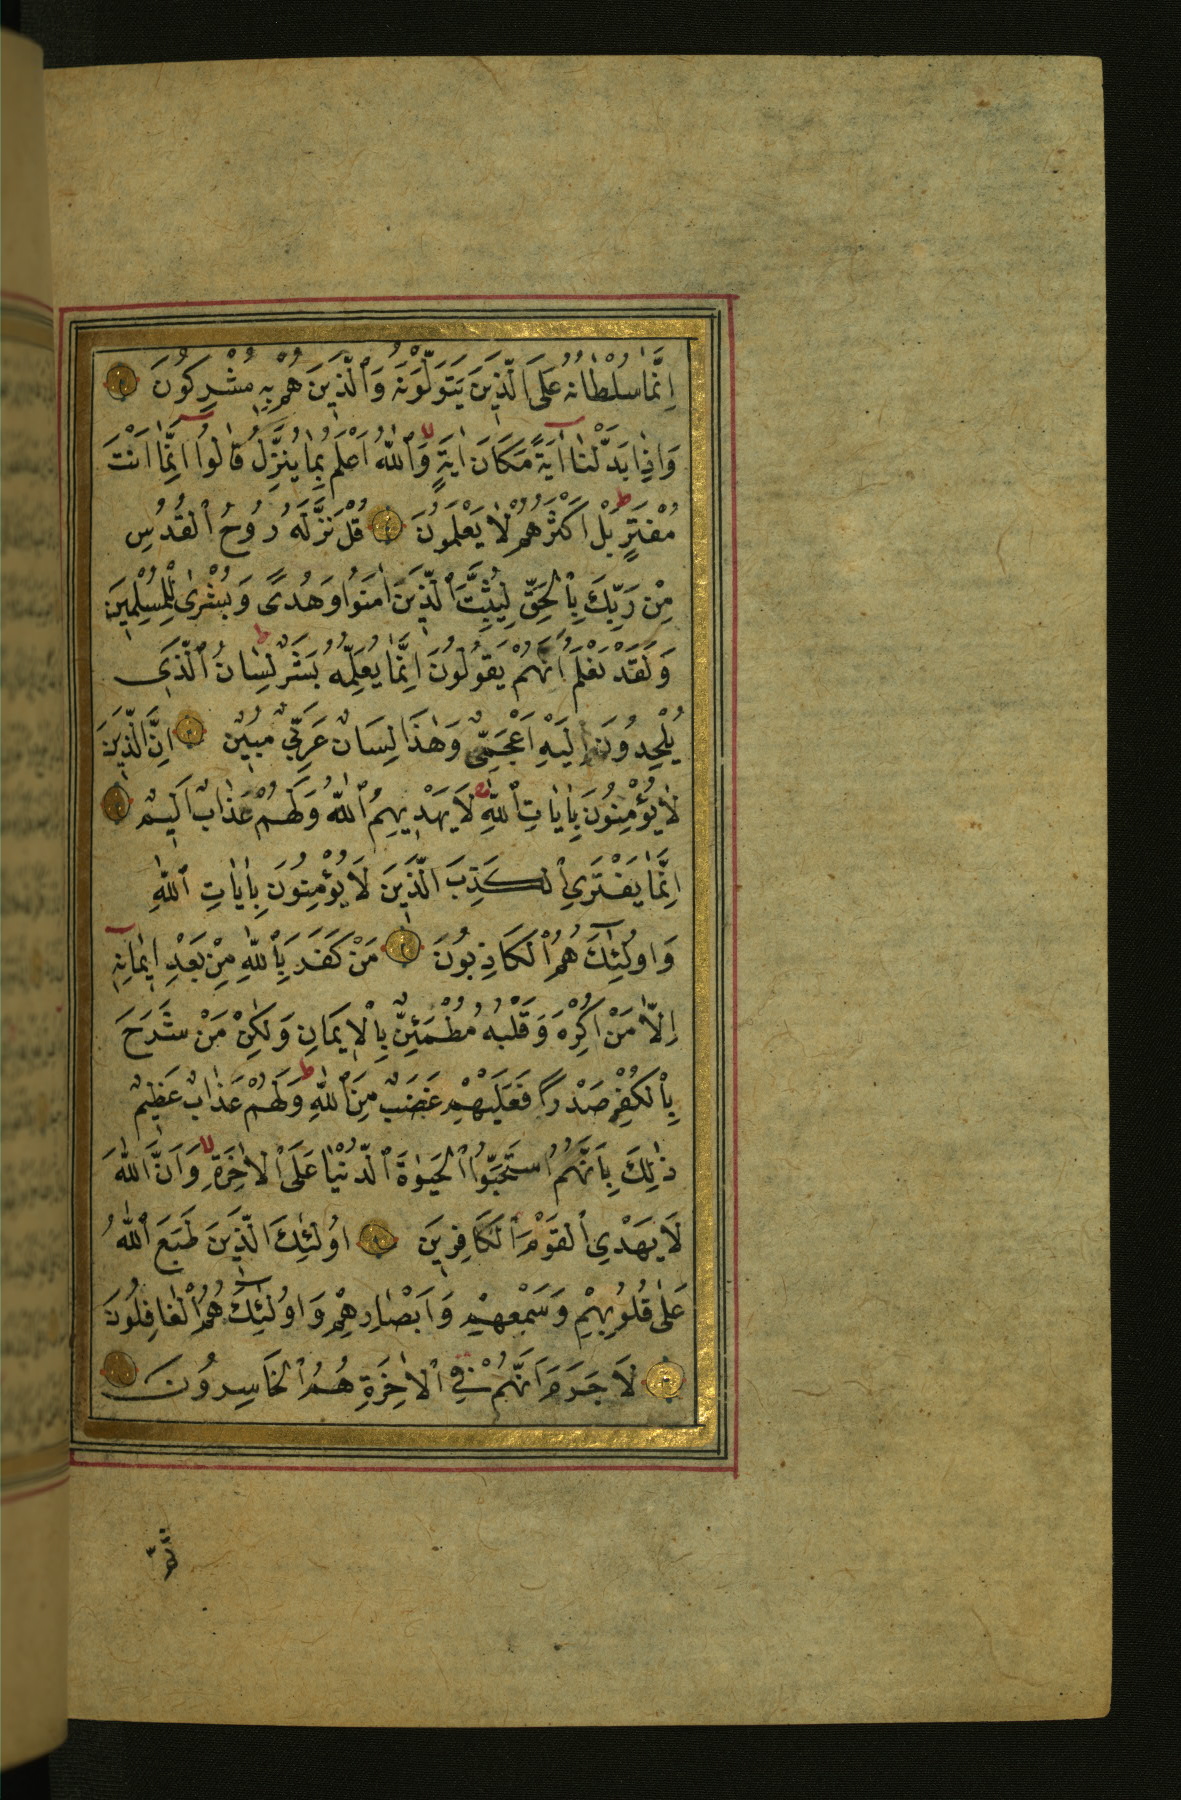 اِنَّمَا سُلْطَانُهُ عَلَى الَّذِينَ يَتَوَلَّوْنَهُ وَالَّذِينَ هُمْ بِهِ مُشْرِكُونَ
وَاِذَا بَدَّلْنَا اٰيَةً مَكَانَ اٰيَةٍ وَاللّٰهُ اَعْلَمُ بِمَا يُنَزِّلُ قَالُوا اِنَّمَا اَنْتَ
مُفْتَرٍ بَلْ اَكْثَرُهُمْ لَا يَعْلَمُونَ قُلْ نَزَّلَهُ رُوحُ الْقُدُسِ
مِنْ رَبِّكَ بِالْحَقِّ لِيُثَبِّتَ الَّذِينَ اٰمَنُوا وَهُدًى وَبُشْرٰى لِلْمُسْلِمِينَ
وَلَقَدْ نَعْلَمُ اَنَّهُمْ يَقُولُونَ اِنَّمَا يُعَلِّمُهُ بَشَرٌ لِسَانُ الَّذِي
يُلْحِدُونَ اِلَيْهِ اَعْجَمِيٌّ وَهٰذَا لِسَانٌ عَرَبِيٌّ مُبِينٌ اِنَّ الَّذِينَ
لَا يُؤْمِنُونَ بِاٰيَاتِ اللّٰهِ لَا يَهْدِيهِمُ اللّٰهُ وَلَهُمْ عَذَابٌ اَلِيمٌ
اِنَّمَا يَفْتَرِي الْكَذِبَ الَّذِينَ لَا يُؤْمِنُونَ بِاٰيَاتِ اللّٰهِ
وَاُولٰٓئِكَ هُمُ الْكَاذِبُونَ مَنْ كَفَرَ بِاللّٰهِ مِنْ بَعْدِ اِيمَانِهِ
اِلَّا مَنْ اُكْرِهَ وَقَلْبُهُ مُطْمَئِنٌّ بِالْاِيمَانِ وَلٰكِنْ مَنْ شَرَحَ
بِالْكُفْرِ صَدْرًا فَعَلَيْهِمْ غَضَبٌ مِنَ اللّٰهِ وَلَهُمْ عَذَابٌ عَظِيمٌ
ذٰلِكَ بِاَنَّهُمُ اسْتَحَبُّوا الْحَيٰوةَ الدُّنْيَا عَلَى الْاٰخِرَةِ وَاَنَّ اللّٰهَ
لَا يَهْدِي الْقَوْمَ الْكَافِرِينَ اُولٰئِكَ الَّذِينَ طَبَعَ اللّٰهُ
عَلٰى قُلُوبِهِمْ وَسَمْعِهِمْ وَاَبْصَارِهِمْ وَاُولٰٓئِكَ هُمُ الْغَافِلُونَ
لَا جَرَمَ اَنَّهُمْ فِي الْاٰخِرَةِ هُمُ الْخَاسِرُونَ
ثُمَّ